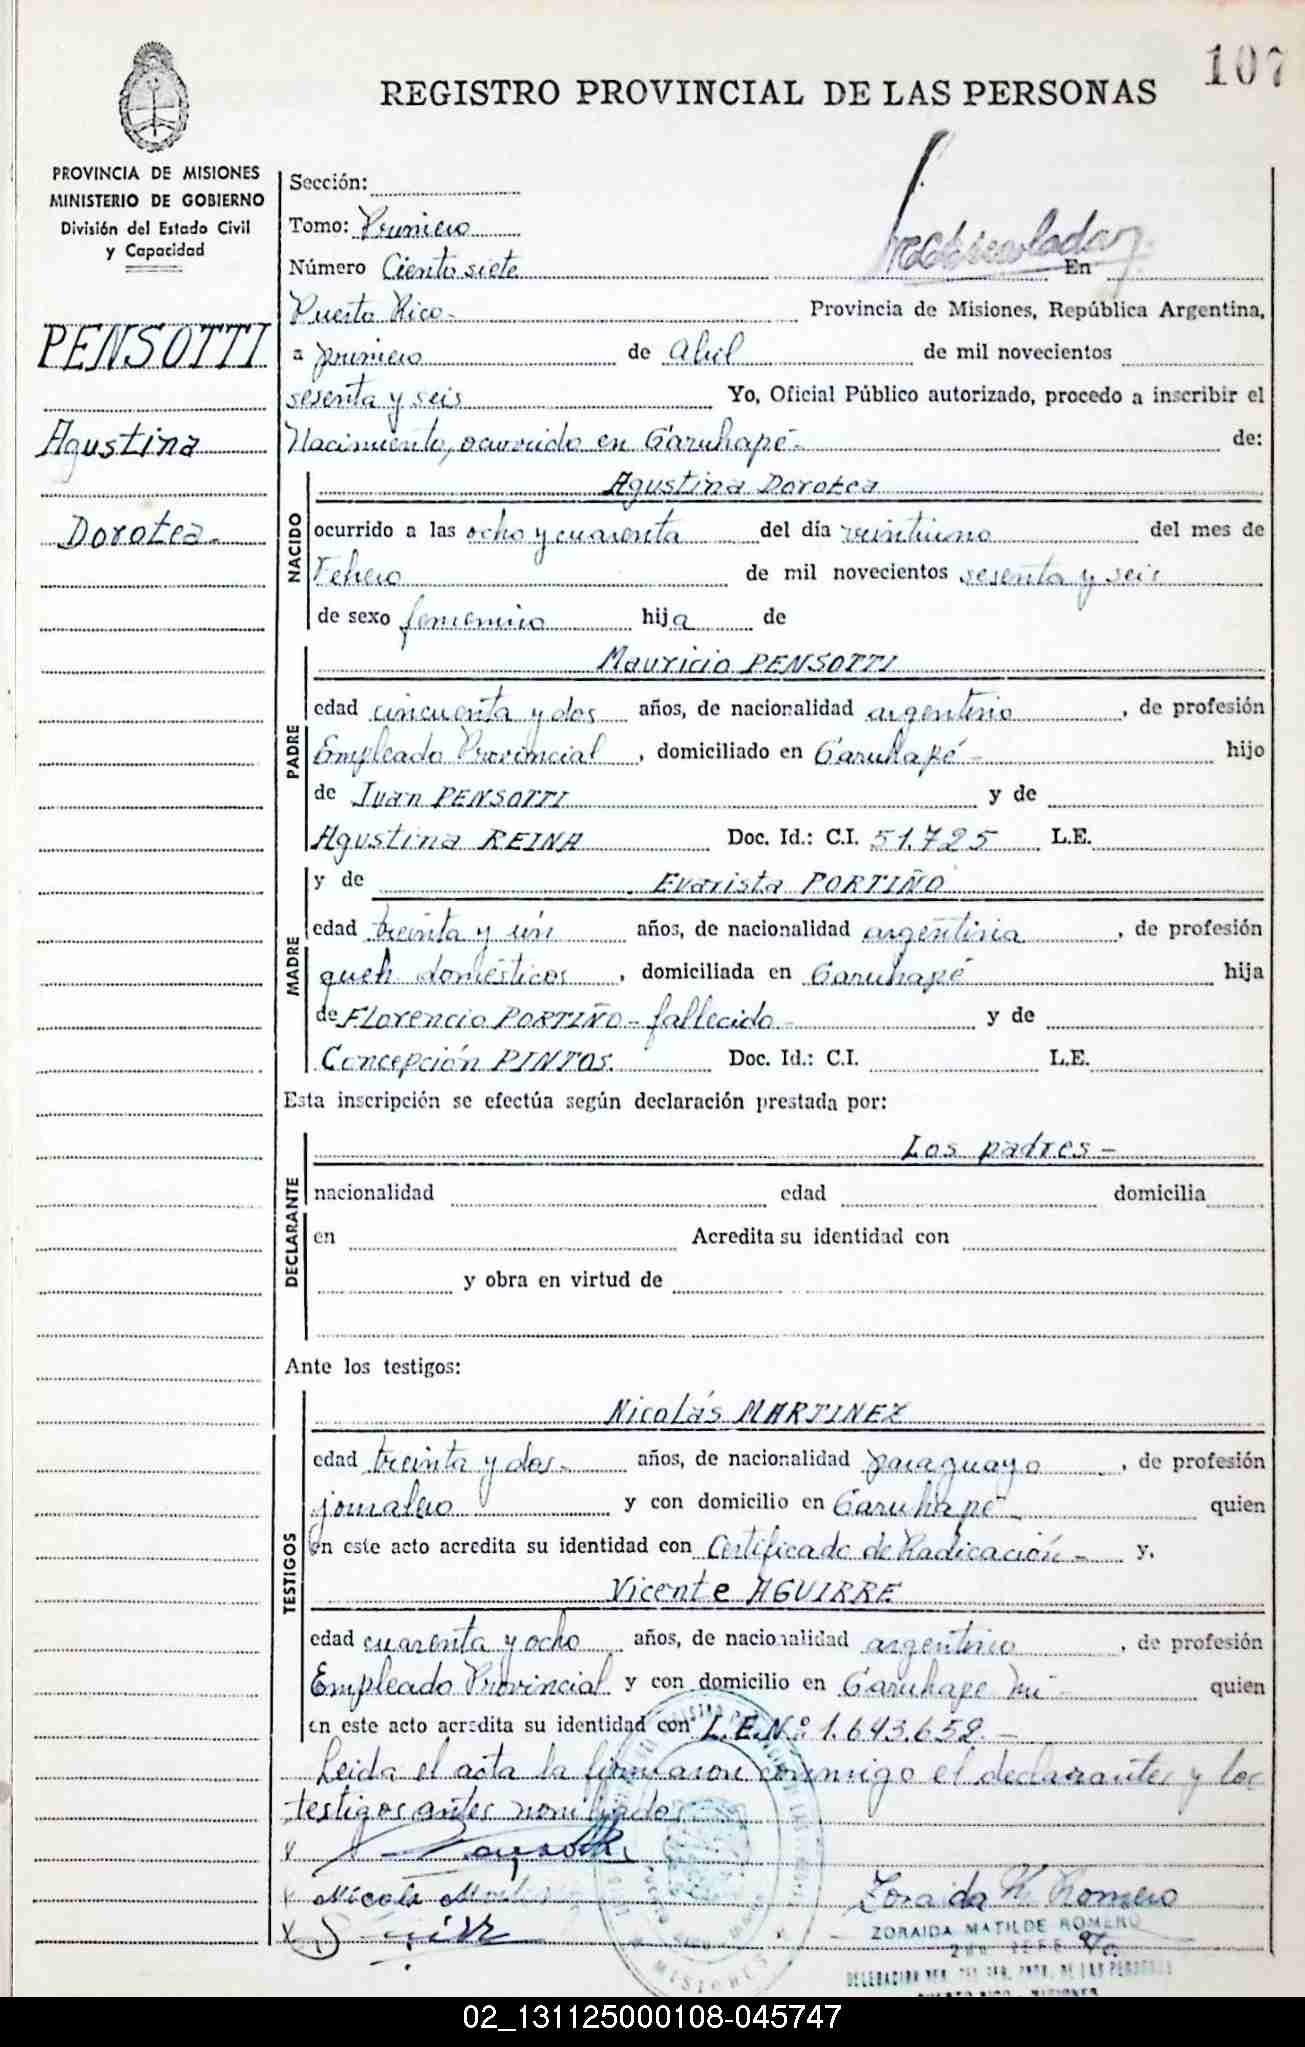 107
REGISTRO PROVINCIAL DE LAS PERSONAS
PROVINCIA DE MISIONES
MINISTERIO DE GOBIERNO
División del Estado Civil
y Capacidad
PENSOTTI
Agustina
Dorotea.
Sección:
Tomo: Primero
Número Ciento siete En
Puerto Rico- Provincia de Misiones, República Argentina,
a primero de Abril de mil novecientos
sesenta y seis Yo, Oficial Público autorizado, procedo a inscribir el
Nacimiento, ocurrido en Garuhapé- de:
NACIDO
Agustina Dorotea
ocurrido a las ocho y cuarenta del día veintiuno del mes de
Febrero de mil novecientos sesenta y seis
de sexo femenino hija de
PADRE
Mauricio PENSOTTI
edad cincuenta y dos años, de nacionalidad argentino, de profesión
Empleado Provincial, domiciliado en Garuhapé- hijo
de Juan PENSOTTI y de
Agustina REINA Doc. Id.: C.I. 51.725 L.E.
MADRE
y de Evarista PORTIÑO
edad treinta y un años, de nacionalidad argentina, de profesión
queh. domésticos, domiciliada en Garuhapé hija
de Florencio PORTIÑO- fallecido- y de
Concepción PINTOS. Doc. Id.: C.I. L.E.
Esta inscripción se efectúa según declaración prestada por:
DECLARANTE
Los padres-
nacionalidad edad domicilia
en Acredita su identidad con
y obra en virtud de
Ante los testigos:
TESTIGOS
Nicolás MARTINEZ
edad treinta y dos- años, de nacionalidad paraguayo, de profesión
jornalero y con domicilio en Garuhapé- quien
en este acto acredita su identidad con Certificado de Radicación- y,
Vicente AGUIRRE
edad cuarenta y ocho años, de nacionalidad argentino, de profesión
Empleado Provincial y con domicilio en Garuhapé Mi- quien
en este acto acredita su identidad con L.E.Nº 1.643.652.-
Leida el acta la firmaron conmigo el declarantes y los
testigos antes nombrados
Zoraida M. Romero
ZORAIDA MATILDE ROMERO
MISIONES
02_131125000108-045747